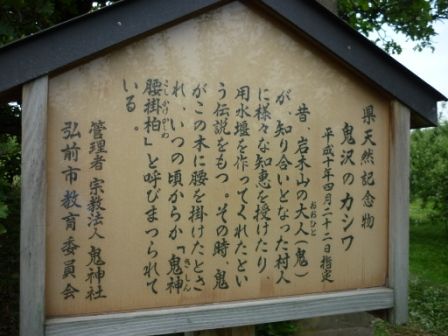 県天然記念物
鬼沢のカシワ
平成十年四月二十二日指定
昔、岩木山の大人(鬼)
おおひと
が、知り合いとなった村人
に様々な知恵を授けたり、
用水堰を作ってくれたとい
う伝説をもつ。その時、鬼
がこの木に腰を掛けたとさ
れ、いつの頃からか「鬼神
きしん
腰掛柏」と呼びまつられて
こしかけがしわ
いる。
管理者 宗教法人 鬼神社
弘前市教育委員会